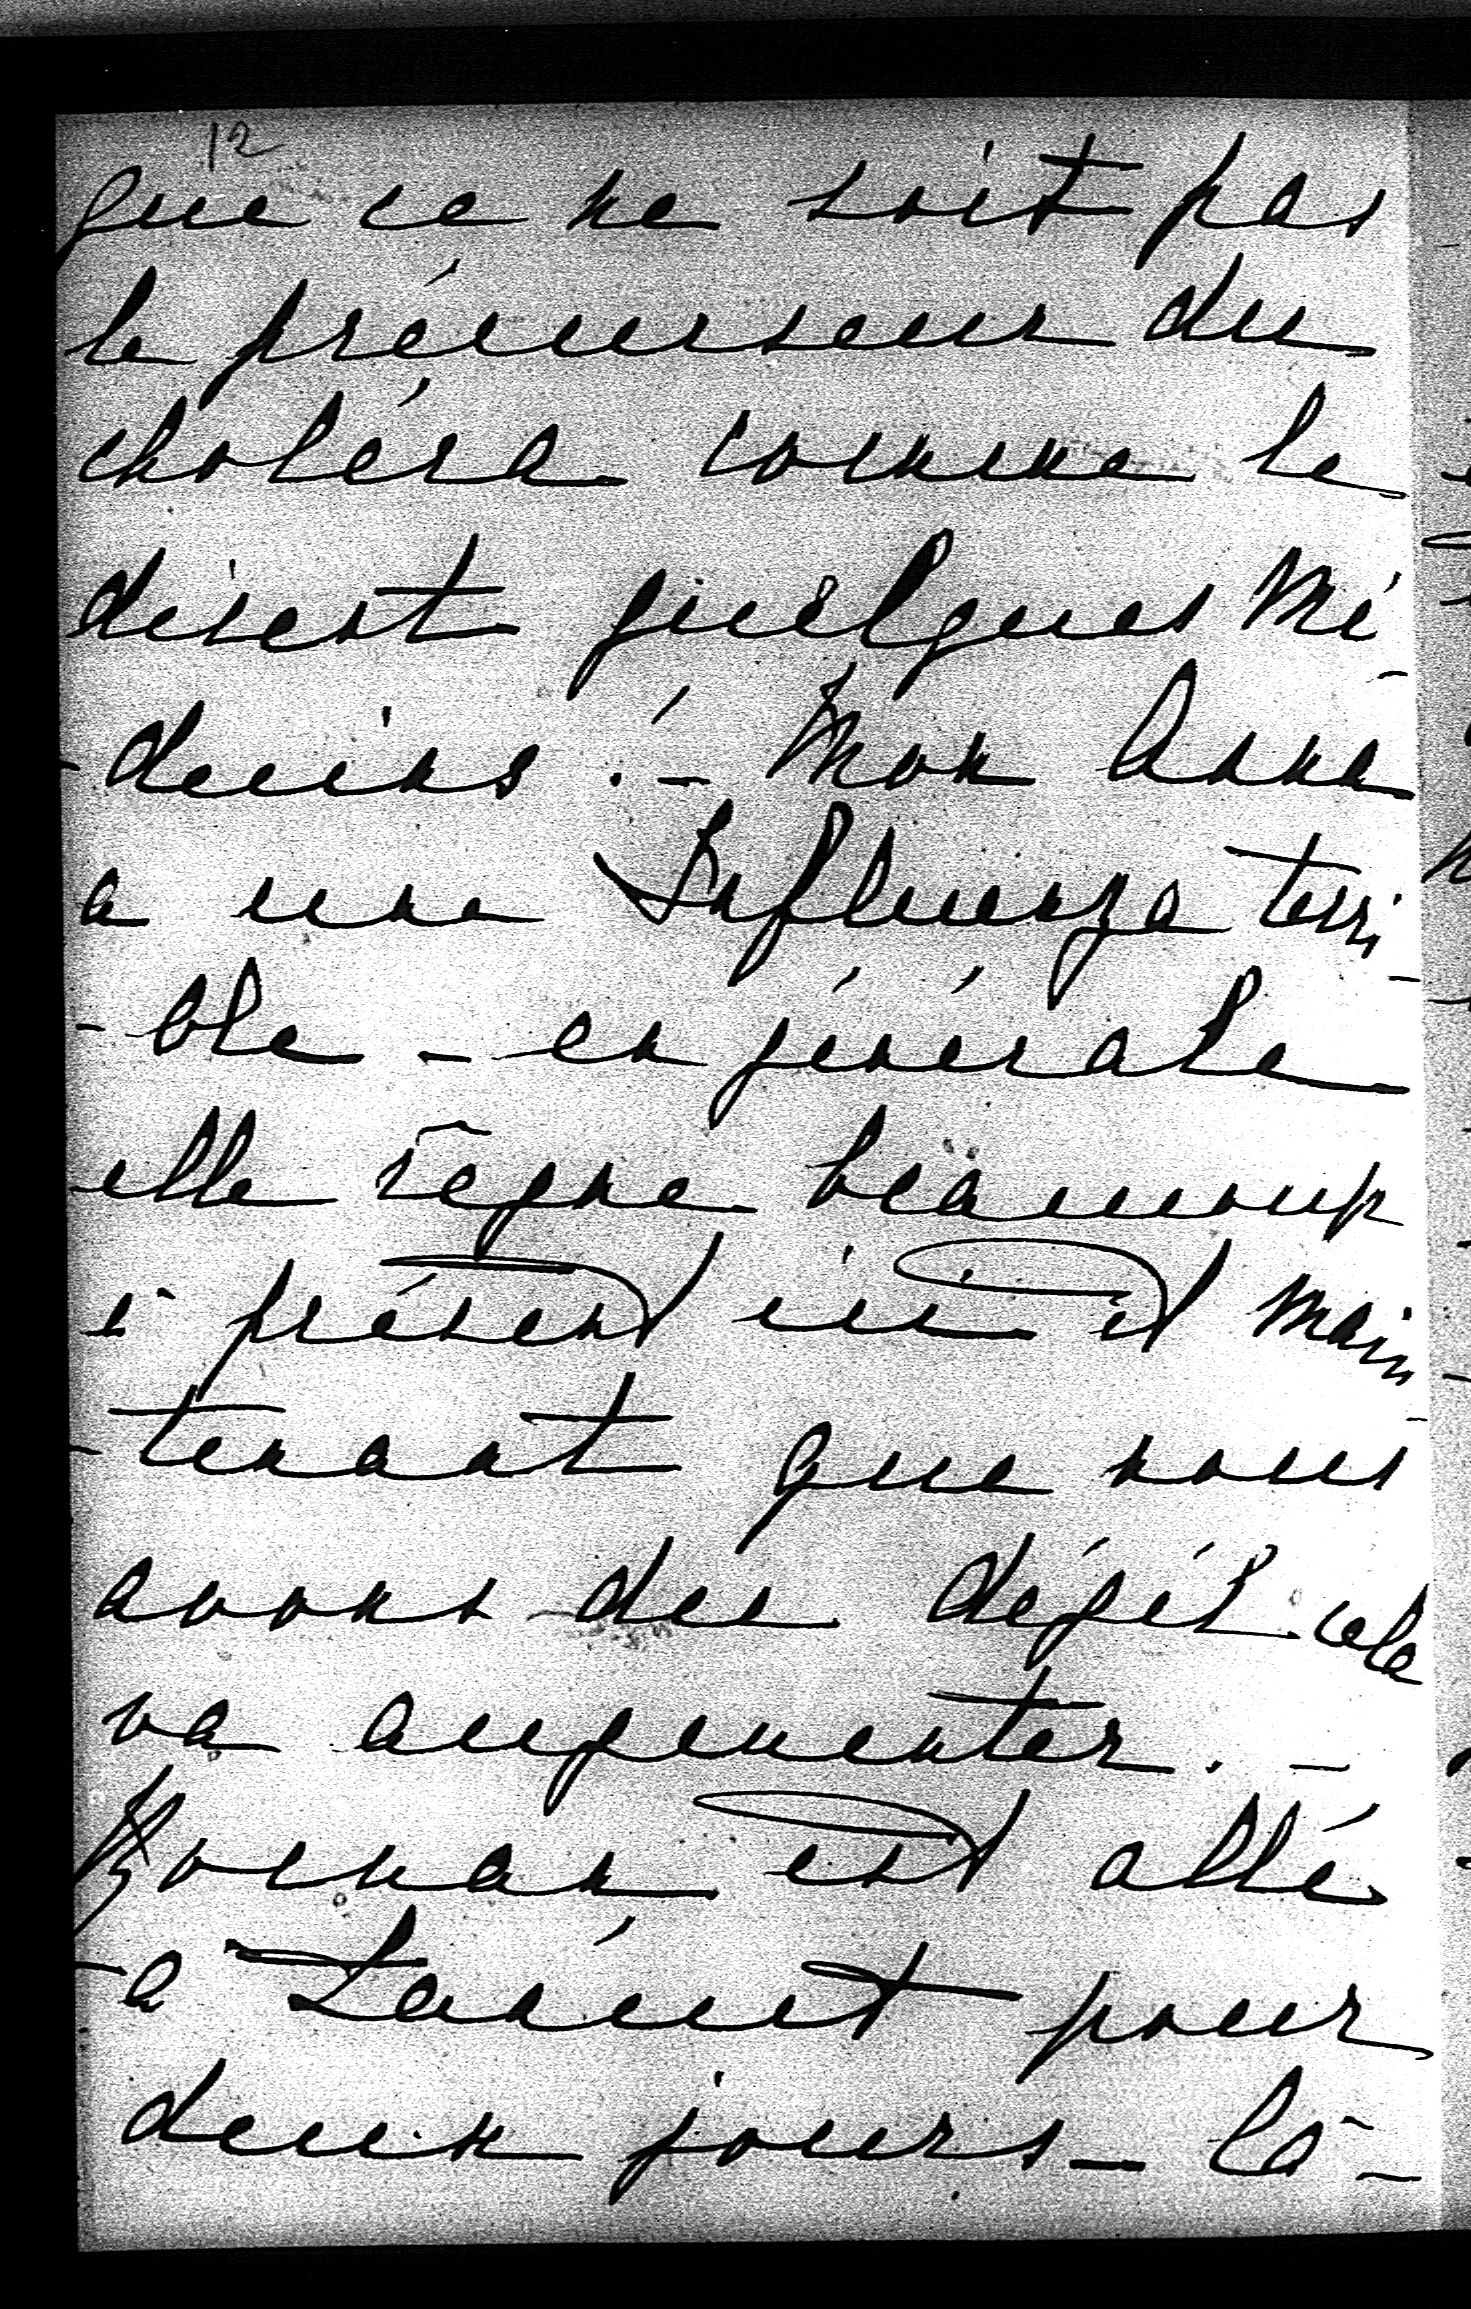 12
que ce ne soit pas
le précurseur du
choléra comme le
disent quelques Mé-
-decins. - Mon Anna
a une Influenza terri-
-ble - en générale
elle règne beaucoup
à présent ici et main-
-tenant que nous
avons des dégél cela
va augmenter. -
est allé
à pour
deux jours - là -